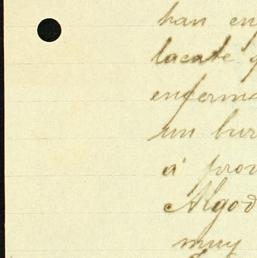 han en
lacate q
enferma
un bur
á prov
Algod
muy